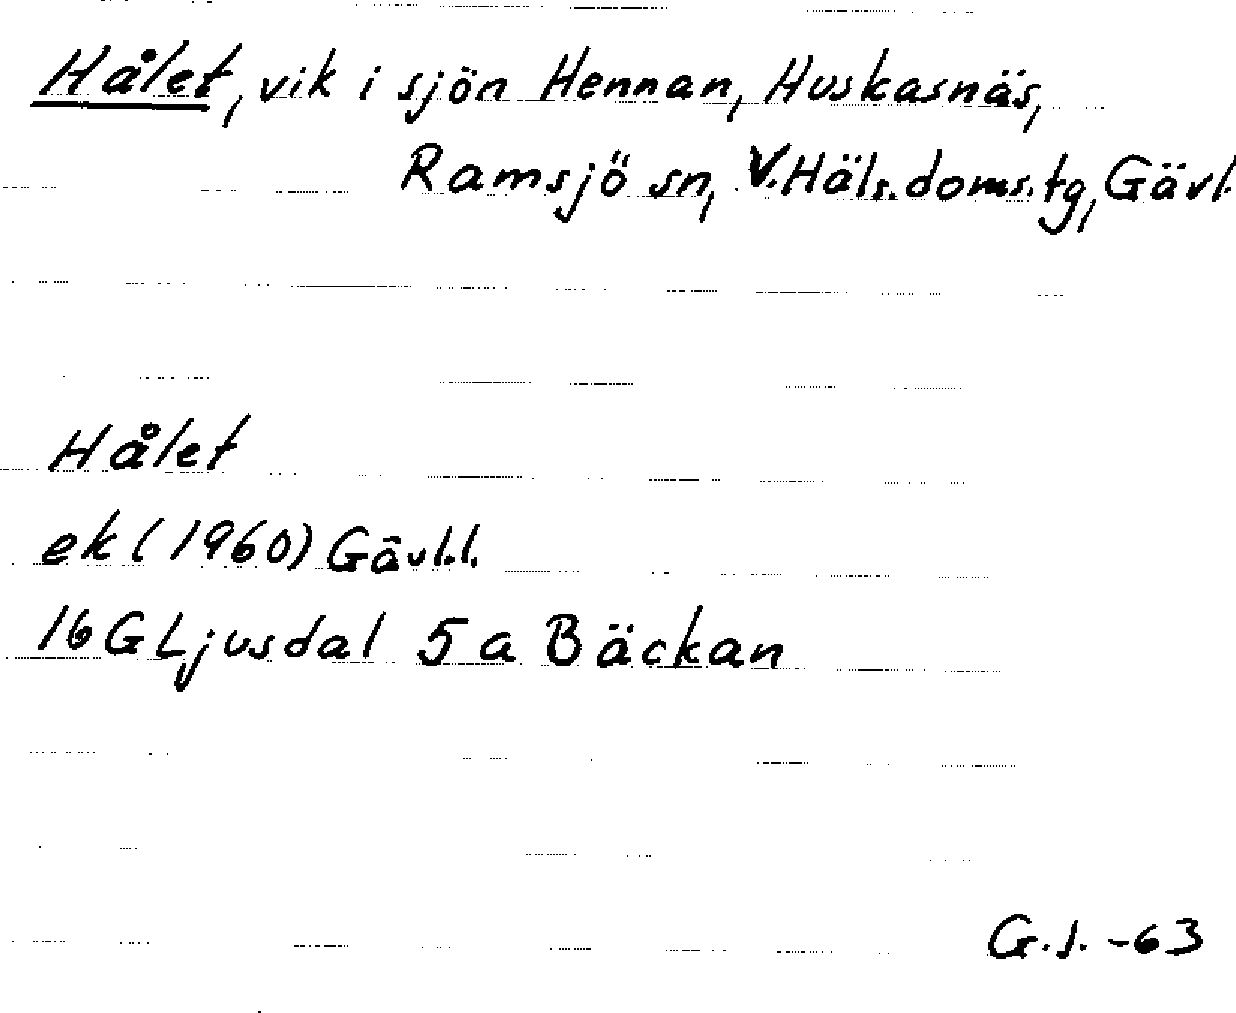 Hålet, vik i sjön Hennan, Huskasnäs,
Ramsjö sn, V.Häls.doms.tg, Gävl.
Hålet
ek (1960) Gävl.l.
16G Ljusdal 5a Bäckan
G.J. -63